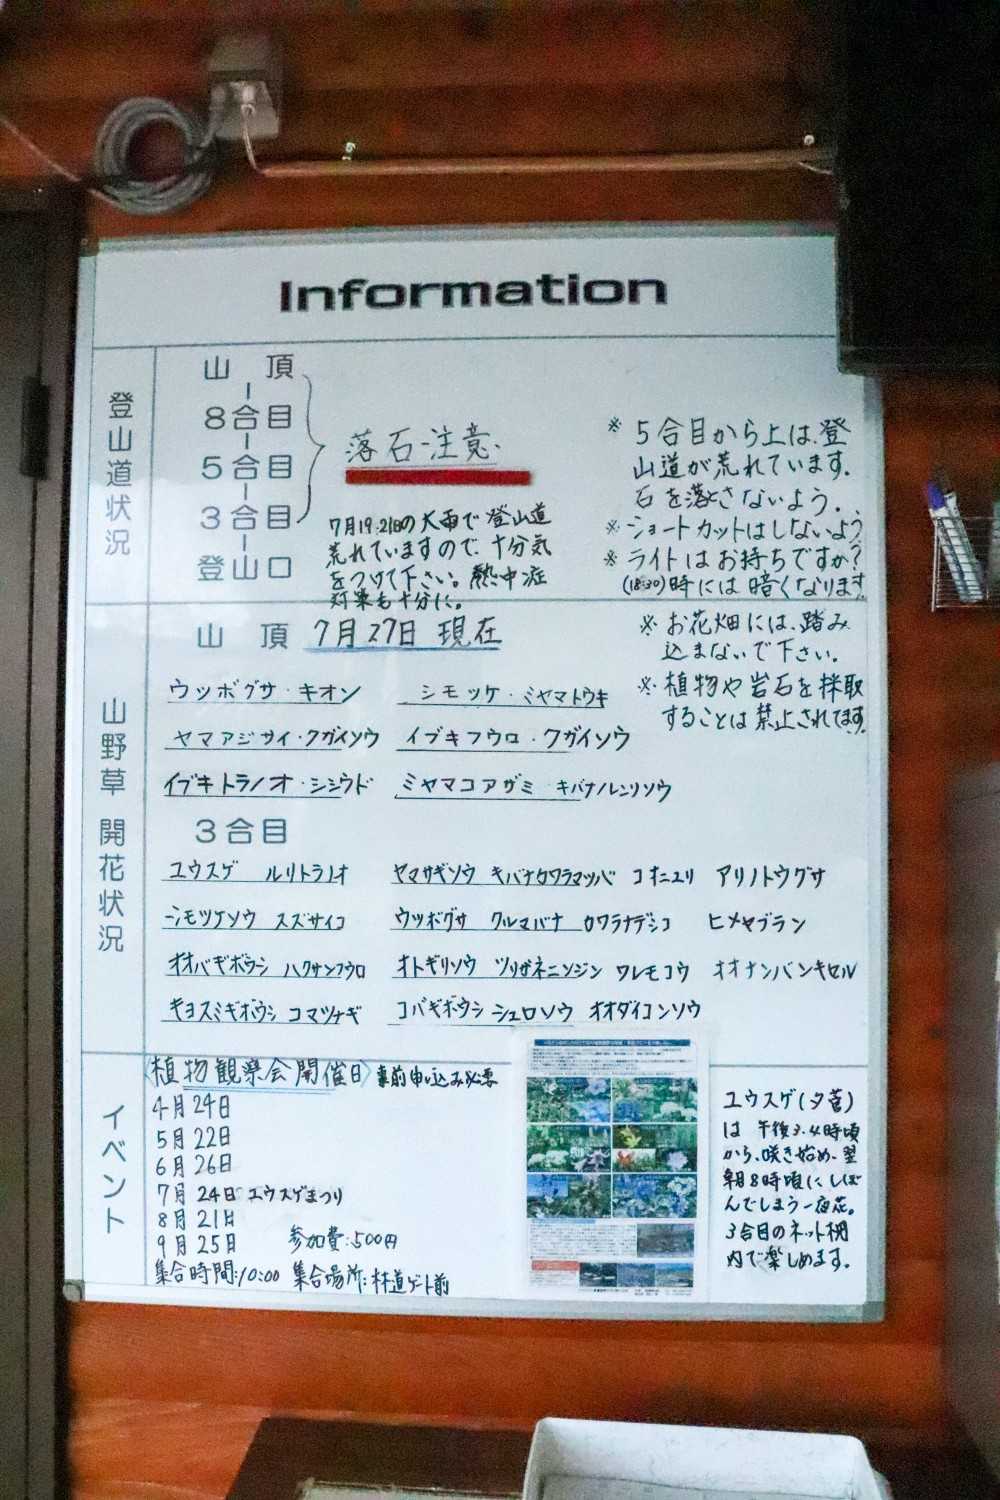 Information
登山道状況
山頂
8合目
5合目
3合目
登山口
落石注意
7月19.21日の大雨で登山道
荒れていますので、十分気
をつけて下さい。熱中症
対策も十分に。
※5合目から上は、登
山道が荒れています。
石を落とさないよう。
※ショートカットはしないよう
※ライトはお持ちですか?
(18:30)時には暗くなります
※お花畑には、踏み
込まないで下さい。
※植物や岩石を採取
することは禁止されてます。
山野草 開花状況
山頂 7月27日 現在
ウツボグサ・キオン シモツケ・ミヤマトウキ
ヤマアジサイ・クガイソウ イブキフウロ・クガイソウ
イブキトラノオ・シシウド ミヤマコアザミ・キバナノレンリソウ
3合目
ユウスゲ ルリトラノオ ヤマサギソウ キバナカワラマツバ コオニユリ アリノトウグサ
シモツケソウ スズサイコ ウツボグサ クルマバナ カワラナデシコ ヒメヤブラン
オオバギボウシ ハクサンフウロ オトギリソウ ツリガネニンジン ワレモコウ オオナンバンキセル
キヨスミギボウシ コマツナギ コバギボウシ シュロソウ オオダイコンソウ
イベント
〈植物観察会開催日〉事前申し込み必要
4月24日
5月22日
6月26日
7月24日 ユウスゲまつり
8月21日
9月25日 参加費:500円
集合時間:10:00 集合場所:林道ゲート前
ユウスゲ(夕菅)
は 午後3.4時頃
から、咲き始め、翌
朝8時頃にしぼ
んでしまう一夜花。
3合目のネット柵
内で楽しめます。